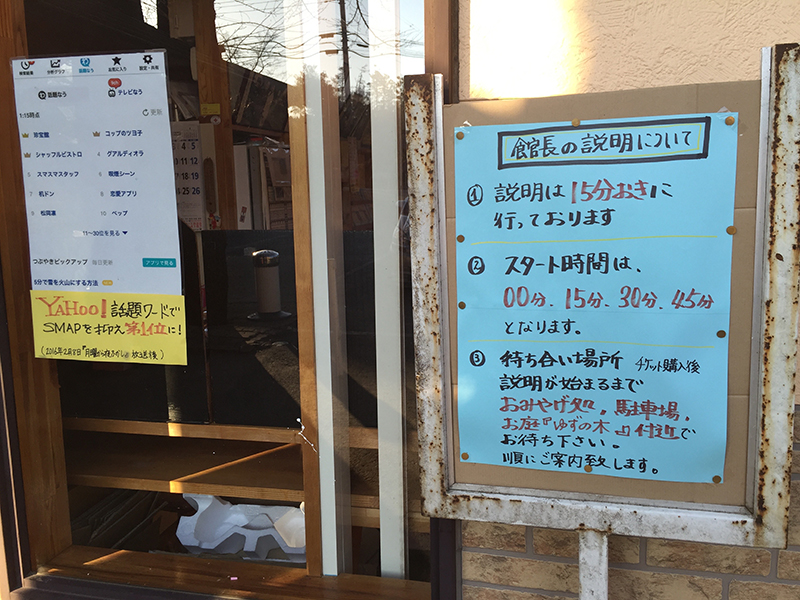 検索結果 分析グラフ 話題なう お気に入り 設定・共有
話題なう テレビなう
1:15時点 更新
コップのツヨ子
シャッフルビストロ 4 グアルディオラ
5 スマスマスタッフ 6 喫煙シーン
7 机ドン 8 恋愛アプリ
9 松岡凛 10 ペップ
11〜30位を見る▼
つぶやきピックアップ 毎日更新 アプリで見る
5分で雪を火山にする方法
YAHOO!話題ワードで
SMAPを抑え第1位に!
(2016年2月8日『月曜から夜ふかし』放送後)
館長の説明について
① 説明は15分おきに
行っております
② スタート時間は、
00分、15分、30分、45分
となります。
③ 待ち合い場所 チケット購入後
説明が始まるまで
おみやげ処、駐車場、
お庭『ゆずの木』付近で
お待ち下さい。
順にご案内致します。